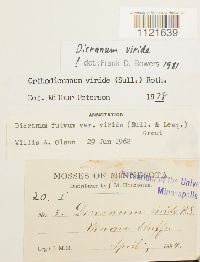 1121639
Dicranum viride
! det: Frank D. Bowers 1981
Orthodicranum viride (Sull.) Roth.
Det. Wilbur Peterson 1978
ANNOTATION
Dicranum fulvum var. viride (Sull. & Lesq.)
Grout
Willis A. Olson 29 Jun 1962
MOSSES OF MINNESOTA
Distributed by J. M. Holzinger.
of the Unive
Minneapolis
Dicranum viride
Winona Bluffs
Leg. J. M. H. April